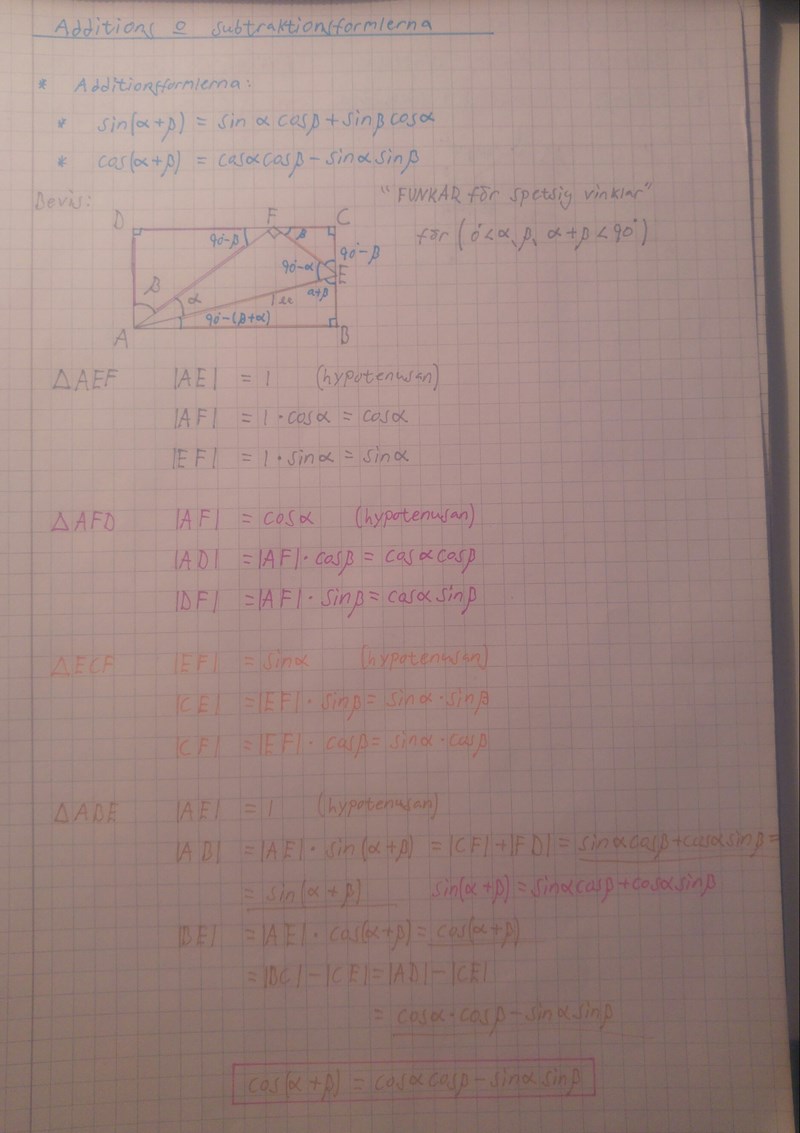 Additions o subtraktionsformlerna
* Additionsformlerna:
* sin(α+β) = sin α cosβ + sinβ cosα
* cos(α+β) = cosα cosβ - sinα sinβ
Bevis:
"FUNKAR för spetsig vinklar"
för (0°<α, β, α+β < 90°)
D F C
90°-β β
90°-β
90°-α E
β α α+β
1
90°-(β+α)
A B
△AEF |AE| = 1 (hypotenusan)
|AF| = 1·cosα = cosα
|EF| = 1·sinα = sinα
△AFD |AF| = cosα (hypotenusan)
|AD| = |AF|·cosβ = cosα cosβ
|DF| = |AF|·sinβ = cosα sinβ
△ECF |EF| = sinα (hypotenusan)
|CE| = |EF|·sinβ = sinα·sinβ
|CF| = |EF|·cosβ = sinα·cosβ
△ABE |AE| = 1 (hypotenusan)
|AB| = |AE|·sin(α+β) = |CF|+|FD| = sinα cosβ + cosα sinβ =
= sin(α+β) sin(α+β) = sinα cosβ + cosα sinβ
|BE| = |AE|·cos(α+β) = cos(α+β)
= |BC|-|CE| = |AD|-|CE|
= cosα·cosβ - sinα sinβ
cos(α+β) = cosα cosβ - sinα sinβ